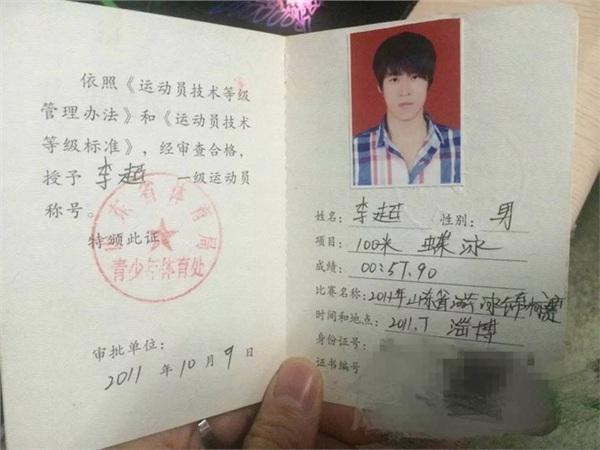 依照《运动员技术等级
管理办法》和《运动员技术
等级标准》，经审查合格，
授予 李超 一级运动员
称号。
特颁此证。
山东省体育局
青少年体育处
审批单位：
2011 年 10 月 9 日
姓名：李超 性别：男
项目：100米 蝶泳
成绩：00:57.90
比赛名称：2011年山东省游泳锦标赛
时间和地点：2011.7 淄博
身份证号：
证书编号